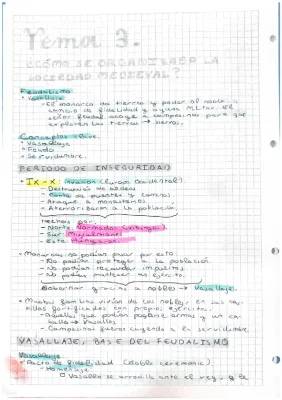 Tema 3.
¿CÓMO SE ORGANIZABA LA
SOCIEDAD MEDIEVAL?
Feudalismo
• Vasallaje
- El monarca da tierras y poder al noble
a cambio de fidelidad y ayuda militar. El
señor feudal acoge a campesinos para que
exploten las tierras → siervos.
Conceptos clave:
• Vasallaje
• Feudo
• Servidumbre.
PERÍODO DE INSEGURIDAD
• IX-X: (Europa Occidental)
- Destrucción de aldeas
- de puentes y campos
- Ataque a monasterios
- Atemorizaron a la población.
hechas por:
- Norte: Normandos (vikingos)
- Sur: Musulmanes
- Este: Húngaros
• Monarcas no podían hacer por esto:
- No podían proteger a la población
- No podían recaudar impuestos
- No podían mantener el ejército.
Gobernar gracias a nobles → Vasallaje.
• Muchas familias vivían de los nobles, en sus
fortificados con propio ejército.
- Aquellos que podían pagarse armas y un ca-
ballo → Vasallos
- Campesinos fueron cayendo a la servidumbre.
VASALLAJE, BASE DEL FEUDALISMO
Vasallaje
• Pacto de fidelidad (doble ceremonia)
- Homenaje
○ Vasallo se arrodilla ante el rey, y le